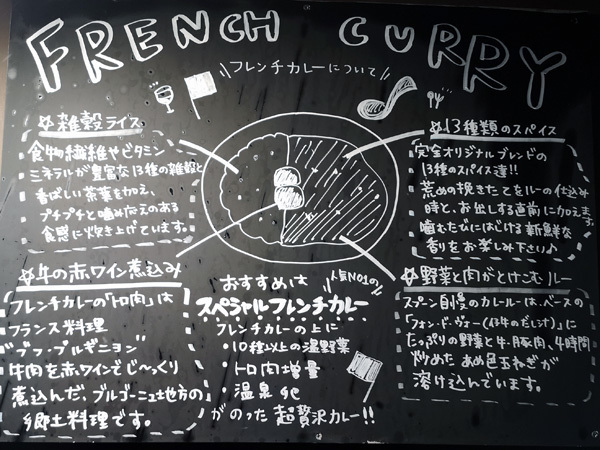 FRENCH CURRY
フレンチカレーについて
☆雑穀ライス
食物繊維やビタミン
ミネラルが豊富な13種の雑穀と
香ばしい茶葉を加え、
プチプチと噛み応えのある
食感に炊き上げています。
☆13種類のスパイス
完全オリジナルブレンドの
13種のスパイス達!!
荒めの挽きたてをルーの仕込み
時と、お出しする直前に加えます。
噛むたびにはじける新鮮な
香りをお楽しみ下さい♪
☆牛の赤ワイン煮込み
フレンチカレーの「トロ肉」は
フランス料理
"ブフ・ブルギニョン"
牛肉を赤ワインでじ〜っくり
煮込んだ、ブルゴーニュ地方の
郷土料理です。
おすすめは
人気NO1の
スペシャルフレンチカレー
フレンチカレーの上に
・10種以上の温野菜
・トロ肉増量
・温泉
がのった超贅沢カレー!!
☆野菜と肉がとけこむルー
スプーン自慢のカレールーは、ベースの
「フォン・ド・ヴォー(仔牛のだし)」に
たっぷりの野菜と牛、豚肉、4時間
炒めたあめ色玉ねぎが
溶け込んでいます。